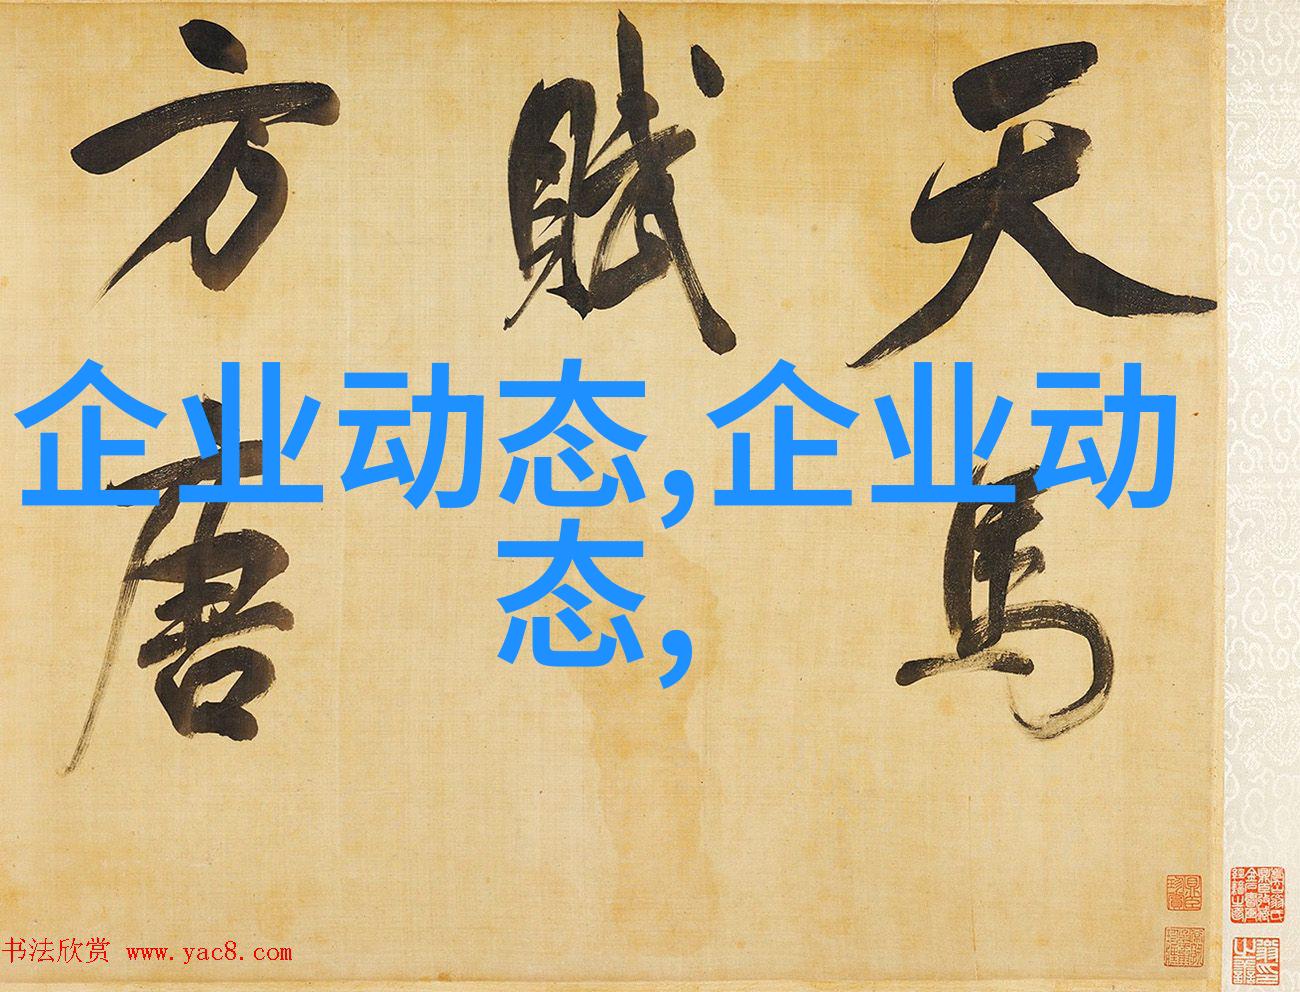 天马
赋
方唐
企业动态,企业动
态,
书法欣赏 www.yac8.com